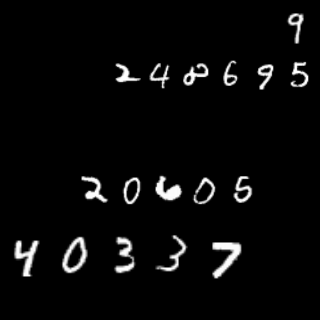 9
248695
20605
40337